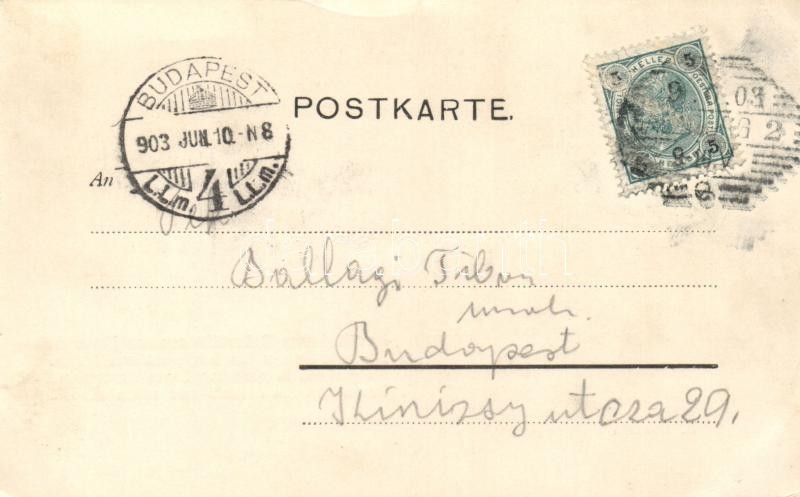 BUDAPEST
903 JUN. 10. N 8
4
POSTKARTE.
HELLER
5 5
5 5
9 03
6 2
An
Ballagi Tibor
urnak.
Budapest
Kinizsy utcza 29.